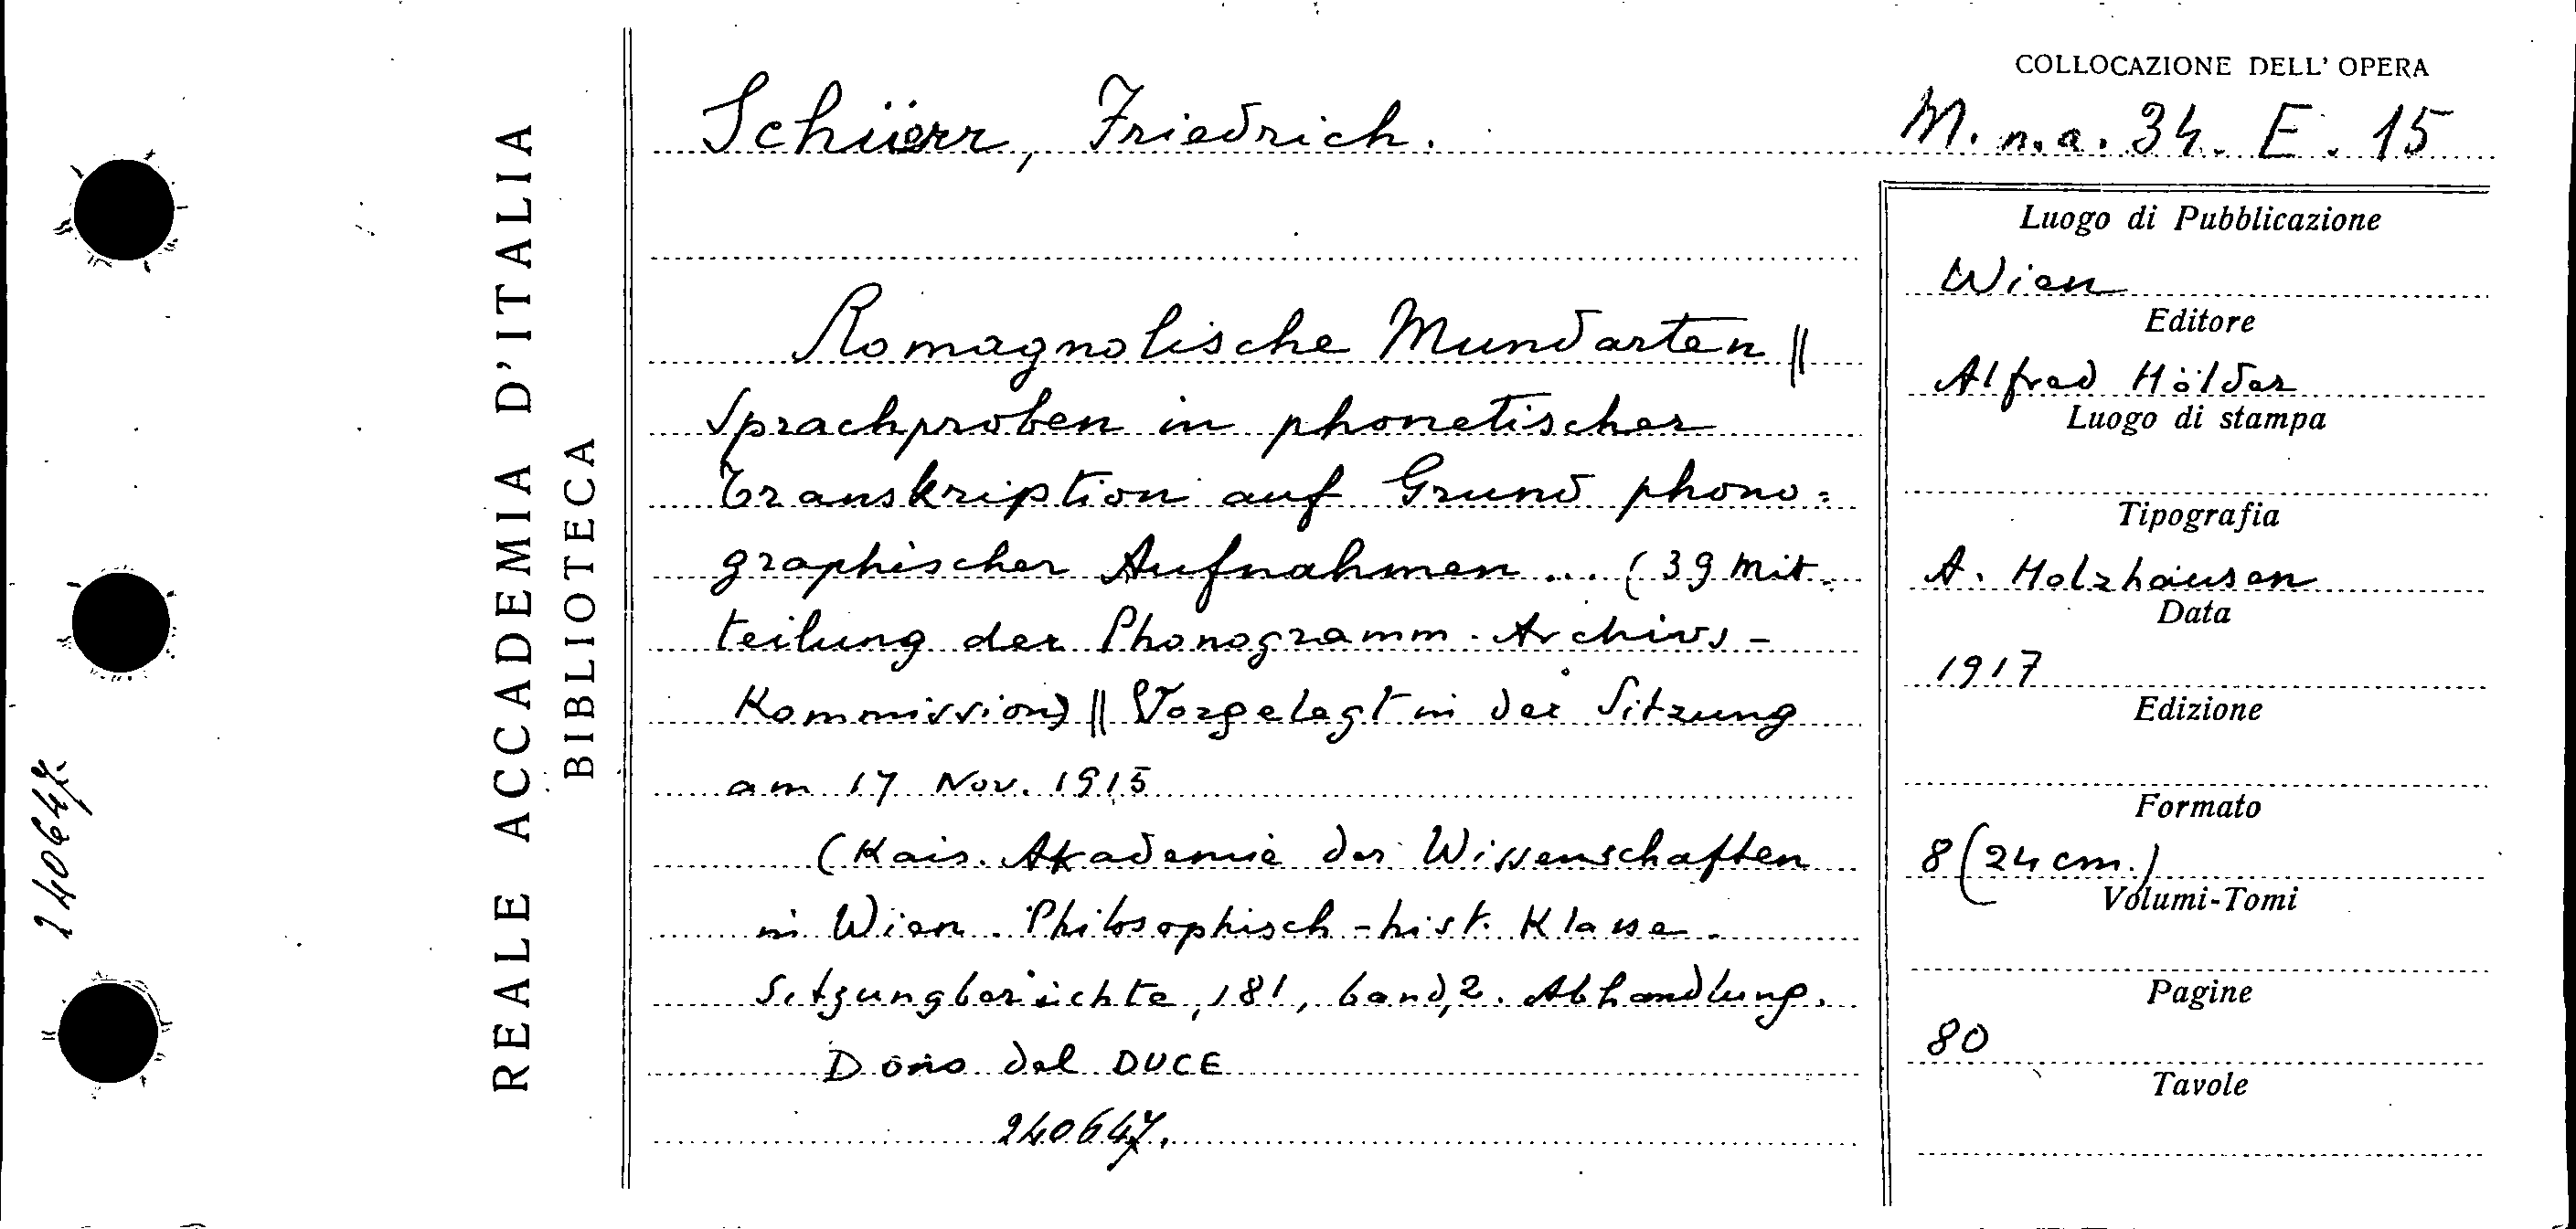 REALE ACCADEMIA D'ITALIA
BIBLIOTECA
240647.
COLLOCAZIONE DELL' OPERA
M. n. a. 34. E. 15
Schürr, Friedrich.
Romagnolische Mundarten ||
Sprachproben in phonetischer
Transkription auf Grund phono=
graphischer Aufnahmen ... (39 Mit-
teilung der Phonogramm-Archivs-
Kommission) || Vorgelegt in der Sitzung
am 17 Nov. 1915
(Kais. Akademie der Wissenschaften
in Wien. Philosophisch-hist. Klasse.
Sitzungberichte, 181, band, 2. Abhandlung.
Dono del DUCE
240647.
Luogo di Pubblicazione
Wien
Editore
Alfred Hölder
Luogo di stampa
Tipografia
A. Holzhausen
Data
1917
Edizione
Formato
8 (24 cm.)
Volumi-Tomi
Pagine
80
Tavole